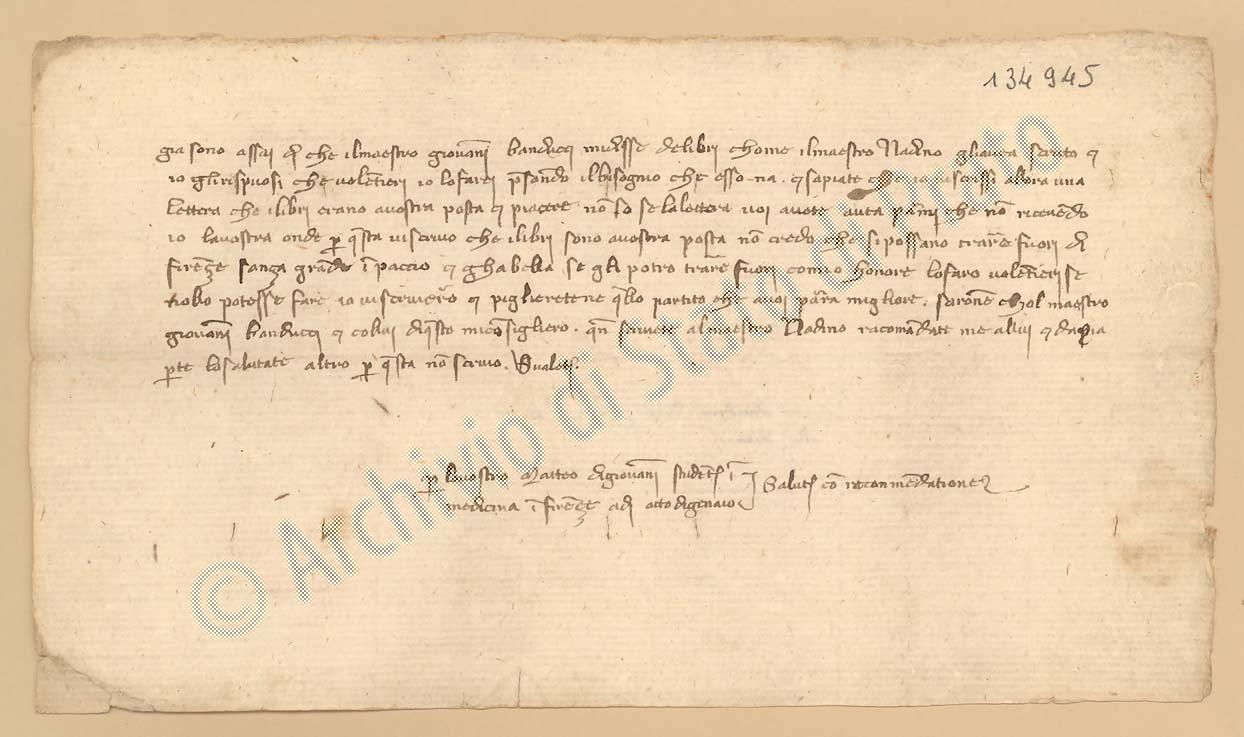 134945
gia sono assai dì che ilmaestro giovanni banducci midisse delibri chome ilmaestro Nadino gliavea scritto e
io glirispuosi che volentieri io lofarei pensando ilbisognio che esso na. e sapiate che io viscrissi allora una
lettera che ilibri erano avostra posta e piacere non so se lalettera voi avete auta parmi che non ricevendo
io lavostra onde per questa viscrivo che ilibri sono avostra posta non credo che sipossano trarre fuori di
firenze sanza grande impaccio e ghabella se gli potro trarre fuori conmio honore lofaro volentieri se
nolio potesse fare io viscriverro e piglieretene quello partito che avoi parra migliore. sarone chol maestro
giovanni banducci e collui diquesto miconsigliero. quando scrivete almaestro Nadino racomandate me allui e damia
parte losalutate altro per questa non scrivo. Valete.
per lovostro Matteo digiovanni studente in
medicina in firenze adi otto digenaio
Salutem con recommendatione
© Archivio di Stato di Prato